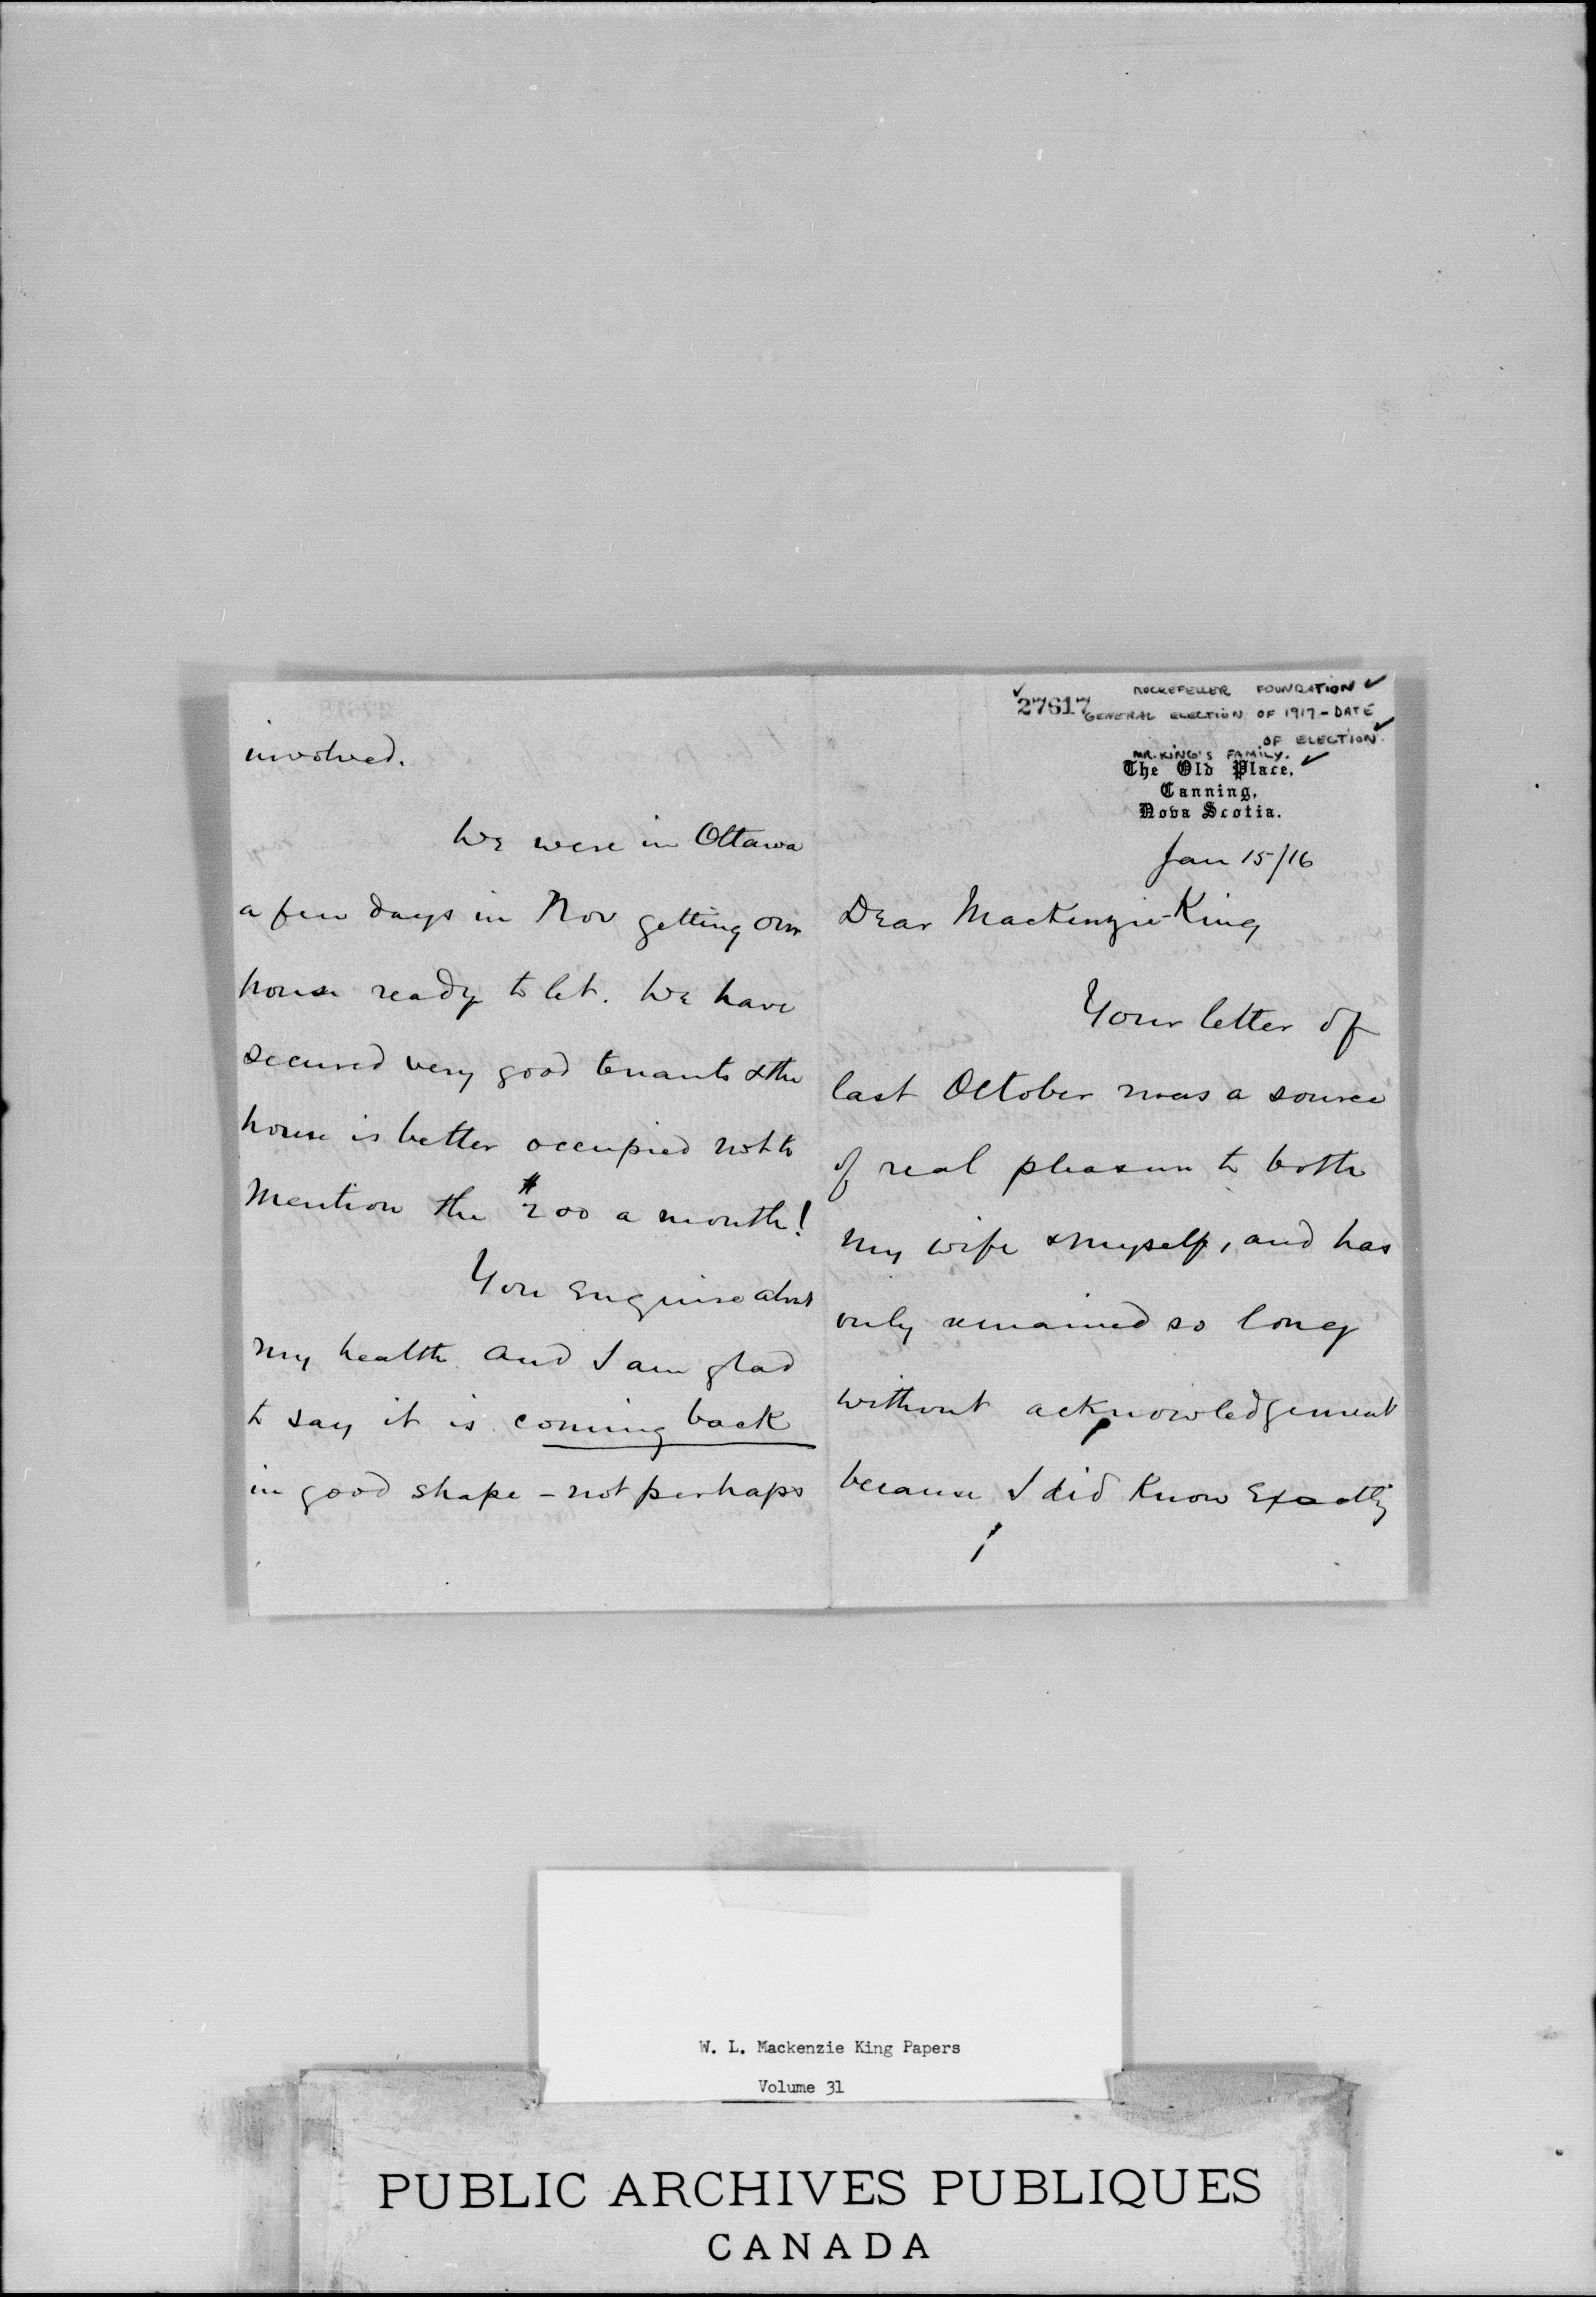 involved.
We were in Ottawa
a few days in Nov getting our
house ready to let. We have
secured very good tenants & the
house is better occupied not to
mention the $200 a month!
You enquire about
my health and I am glad
to say it is coming back
in good shape – not perhaps
27617
ROCKEFELLER FOUNDATION ✓
GENERAL ELECTION OF 1917 – DATE
OF ELECTION. ✓
MR. KING'S FAMILY. ✓
The Old Place,
Canning,
Nova Scotia.
Jan 15/16
Dear MacKenzie-King
Your letter of
last October was a source
of real pleasure to both
my wife & myself, and has
only remained so long
without acknowledgement
because I did know exactly
W. L. Mackenzie King Papers
Volume 31
PUBLIC ARCHIVES PUBLIQUES
CANADA